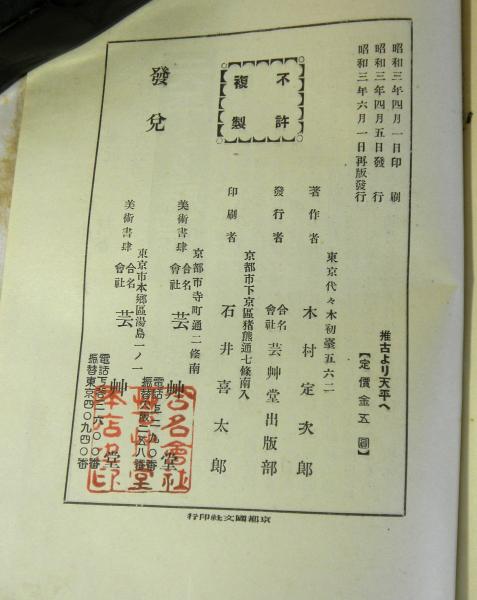 昭和三年四月一日印刷
昭和三年四月五日發行
昭和三年六月一日再版發行
推古より天平へ
【定價金五圓】
不許
複製
東京代々木初臺五六二
著作者 木村定次郎
發行者 合名會社 芸艸堂出版部
京都市下京區猪熊通七條南入
印刷者 石井喜太郎
發兌
京都市寺町通二條南
美術書肆 合名會社 芸艸堂
東京市本郷區湯島一ノ一
美術書肆 合名會社 芸艸堂
振替東京四〇九四〇番
合名會社
京都國文社印行